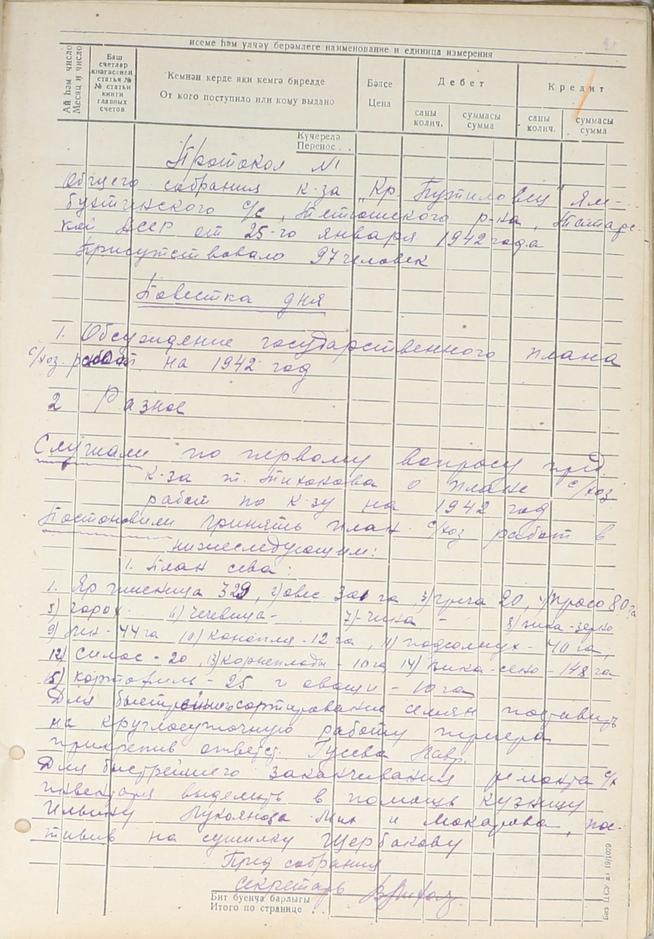 исеме һәм үлчәү берәмлеге наименование и единица измерения
Ай һәм число
Месяц и число
Баш счетлар кнәгәсенең статья №
№ статьи книги главных счетов
Кемнән керде яки кемгә бирелде
От кого поступило или кому выдано
Бәясе
Цена
Дебет
саны колич.
суммасы сумма
Кредит
саны колич.
суммасы сумма
Күчерелә
Перенос . .
Протокол №1
Общего собрания к-за "Кр Путиловец" Ям-
бухтинского с/с, Тетюшского р-на, Татарс-
кой АССР от 25-го января 1942 года
Присутствовало 97 человек
Повестка дня
1. Обсуждение государственного плана
с/хоз. работ на 1942 год
2 Разное
Слушали по первому вопросу пред.
к-за т. Тихонова о плане с/хоз
работ по к-зу на 1942 год
Постановили принять план с/хоз работ в
нижеследующим:
1. План сева:
1. Яр пшеница 329, 2) овес 301 га 3) греча 20, 4) просо 80 га
5) горох- 6) Чечевица- 7) 8) вика-зерно
9) лен-44 га 10) Конопля-12 га, 11) подсолнух-40 га,
12) Силос-20, 13) корнеплоды-10 га 14) Вика-сено-148 га
15) картофиль-25 и овощи-10 га
Для сортирование семян поставить
на круглосуточную работу триера
прикрепив ответс. Гусева
Для быстрейшего заканчивания ремонта с/х
инвентаря выделить в помощь кузницу
Ильину Лукоянова и Макарова, пос-
тавив на сушилку Щербакову
Пред собрания
Секретарь
Бит буенча барлыгы
Итого по странице . .